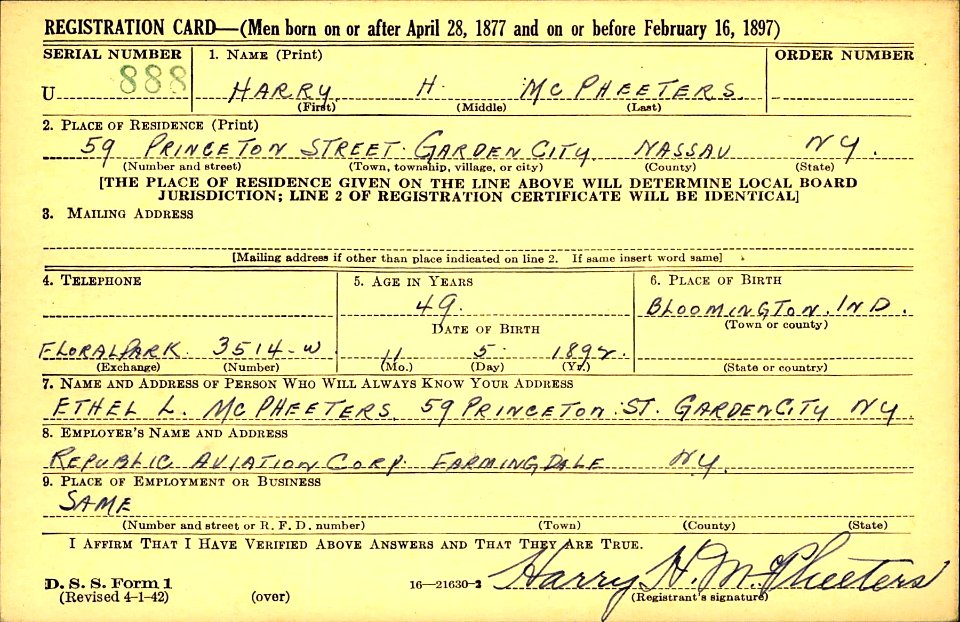 REGISTRATION CARD—(Men born on or after April 28, 1877 and on or before February 16, 1897)
SERIAL NUMBER 1. NAME (Print) ORDER NUMBER
U 888 HARRY H. MCPHEETERS
(First) (Middle) (Last)
2. PLACE OF RESIDENCE (Print)
59 PRINCETON STREET. GARDEN CITY NASSAU NY.
(Number and street) (Town, township, village, or city) (County) (State)
[THE PLACE OF RESIDENCE GIVEN ON THE LINE ABOVE WILL DETERMINE LOCAL BOARD
JURISDICTION; LINE 2 OF REGISTRATION CERTIFICATE WILL BE IDENTICAL]
3. MAILING ADDRESS
[Mailing address if other than place indicated on line 2. If same insert word same]
4. TELEPHONE 5. AGE IN YEARS 6. PLACE OF BIRTH
49. BLOOMINGTON, IND.
DATE OF BIRTH (Town or county)
FLORALPARK 3514-W 11 5 1892.
(Exchange) (Number) (Mo.) (Day) (Yr.) (State or country)
7. NAME AND ADDRESS OF PERSON WHO WILL ALWAYS KNOW YOUR ADDRESS
ETHEL L. MCPHEETERS 59 PRINCETON ST. GARDEN CITY NY.
8. EMPLOYER'S NAME AND ADDRESS
REPUBLIC AVIATION CORP. FARMINGDALE NY.
9. PLACE OF EMPLOYMENT OR BUSINESS
SAME
(Number and street or R. F. D. number) (Town) (County) (State)
I AFFIRM THAT I HAVE VERIFIED ABOVE ANSWERS AND THAT THEY ARE TRUE.
D. S. S. Form 1 16—21630-2 Harry H. McPheeters
(Revised 4-1-42) (over) (Registrant's signature)